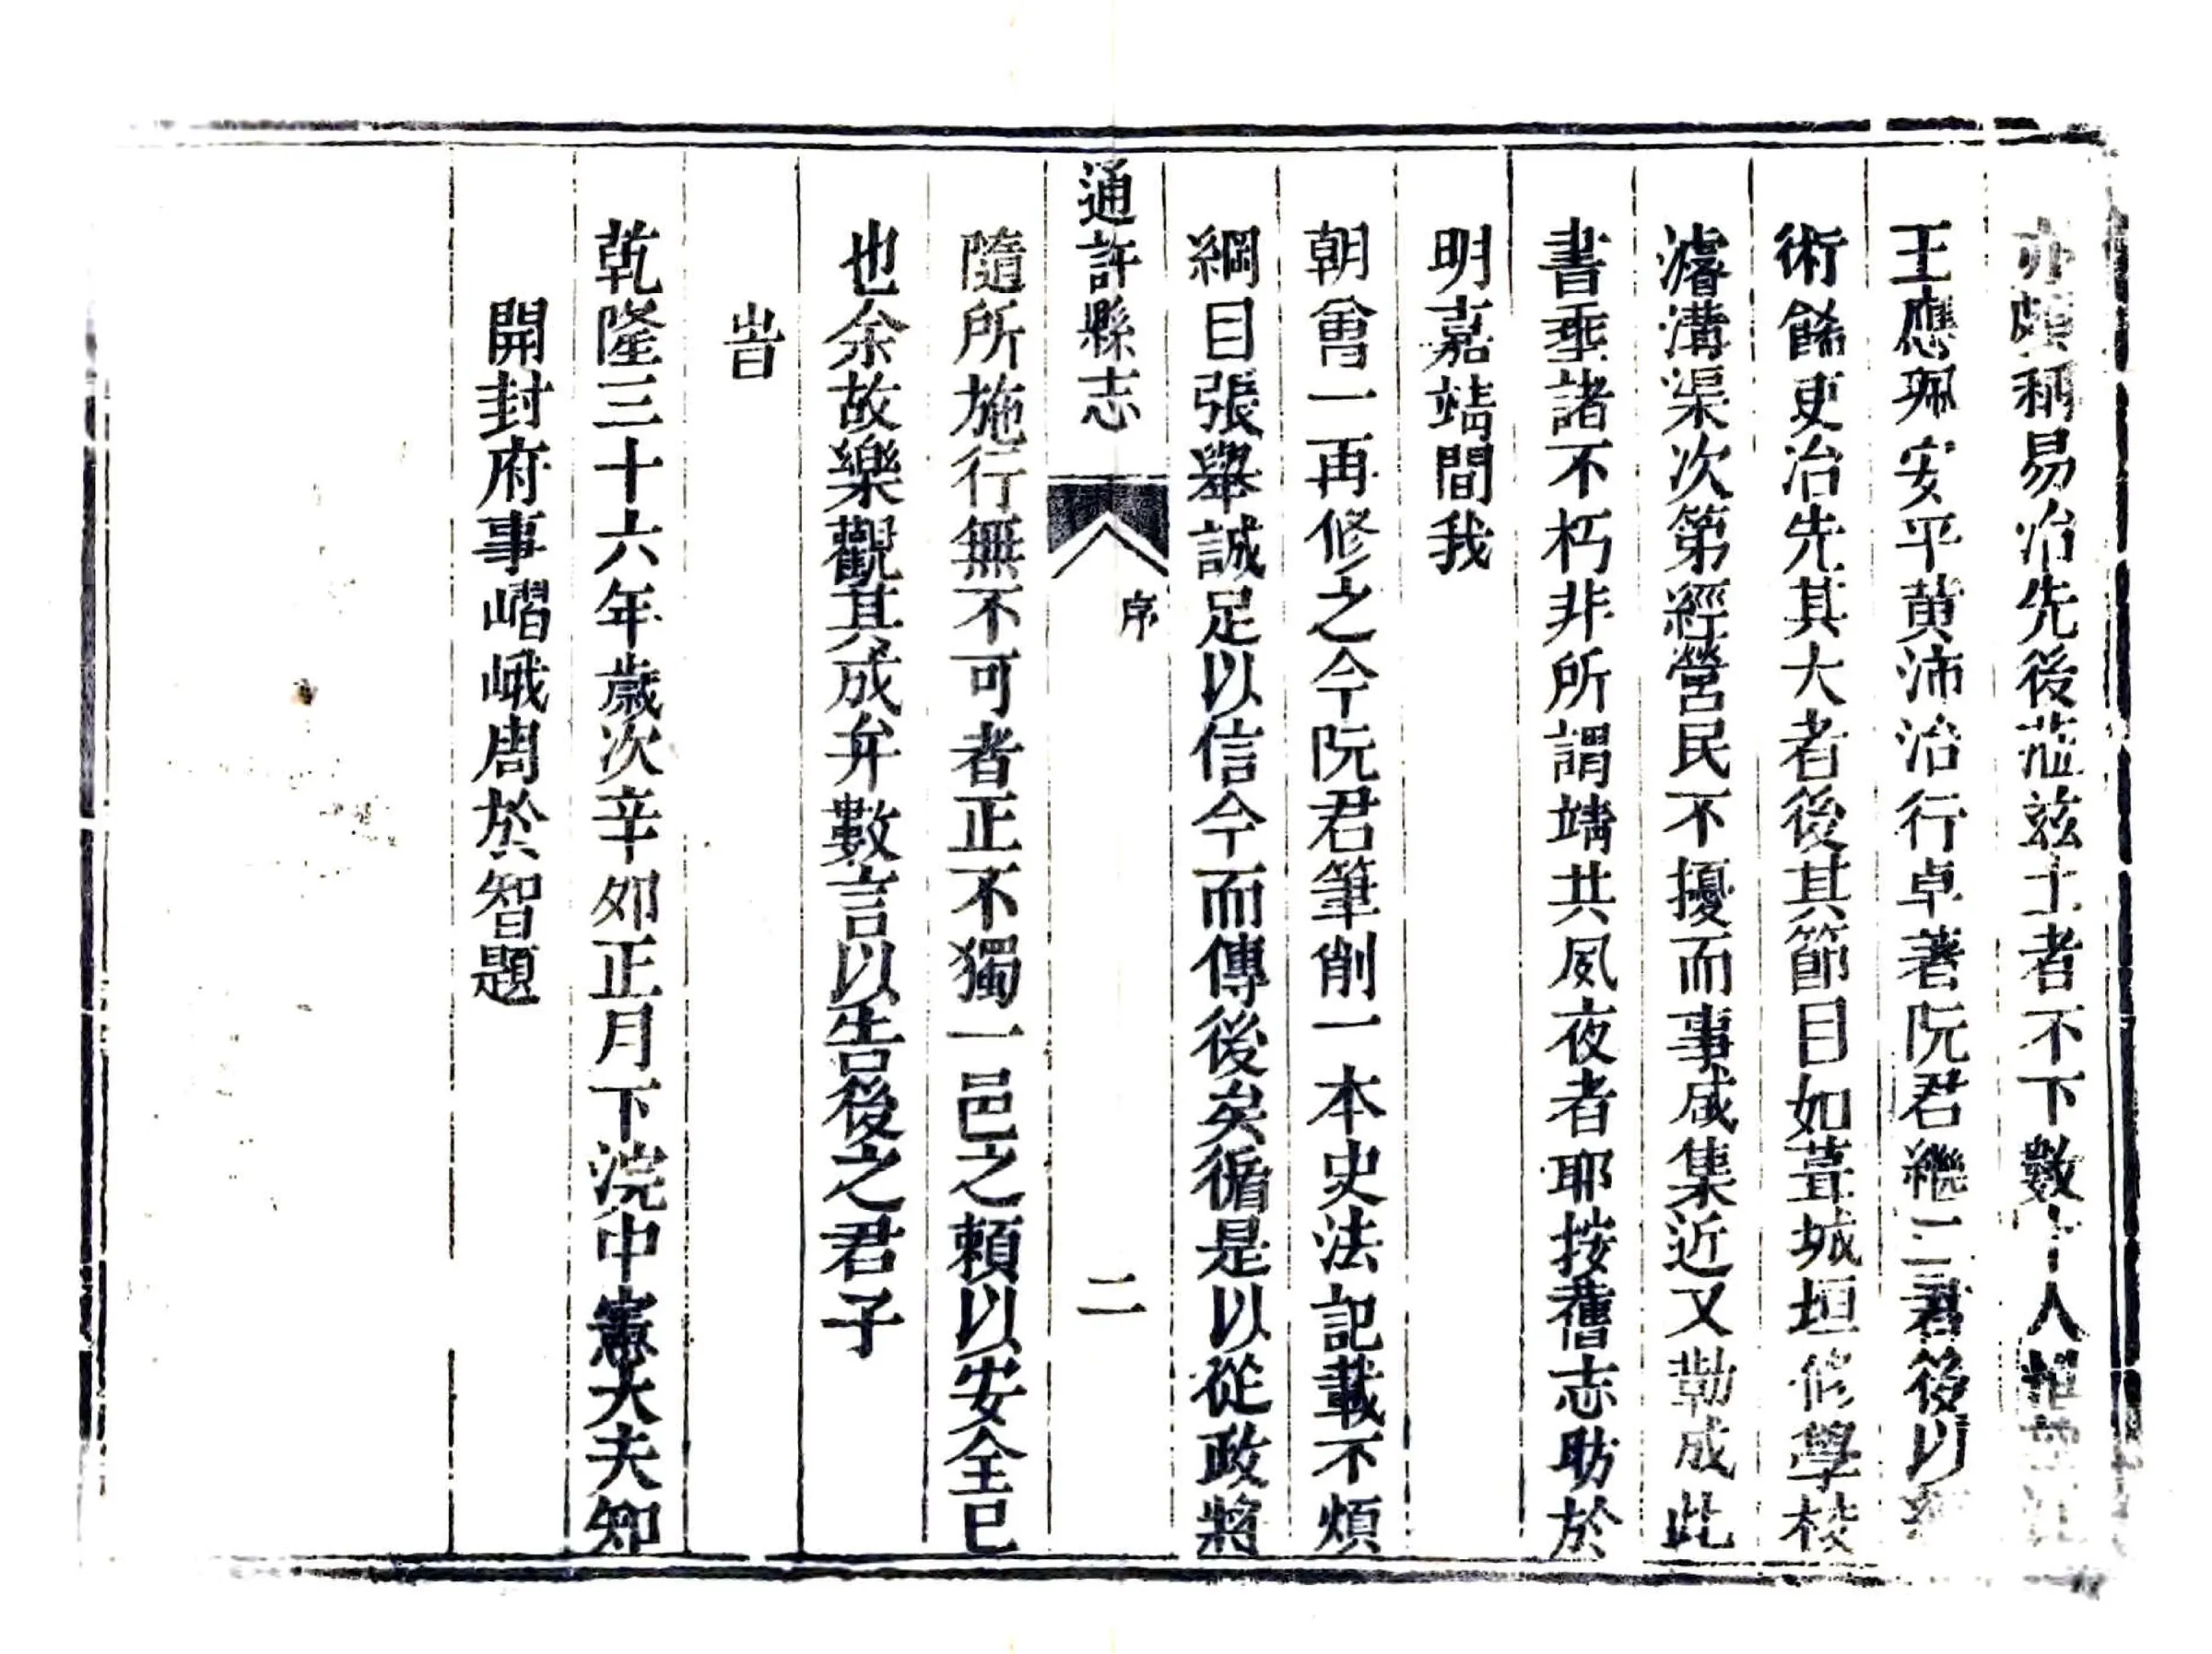 亦頗稱易治先後蒞兹土者不下數十人惟
王應珮安平黄沛治行卓著阮君繼二君後以
術餙吏治先其大者後其節目如葺城垣修學校
濬溝渠次第經營民不擾而事咸集近又勒成此
書垂諸不朽非所謂靖共夙夜者耶按舊志昉於
明嘉靖間我
朝曾一再修之今阮君筆削一本史法記載不煩
綱目張舉誠足以信今而傳後矣循是以從政將
通許縣志
序
二
隨所施行無不可者正不獨一邑之頼以安全已
也余故樂觀其成弁數言以告後之君子
旹
乾隆三十六年歲次辛夘正月下浣中憲大夫知
開封府事嶍峨周於智題